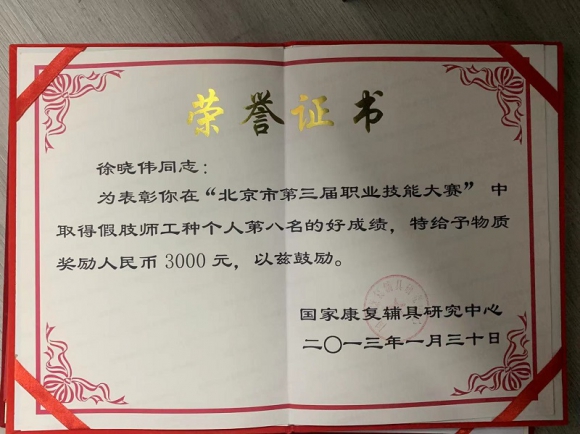 荣誉证书
徐晓伟同志：
为表彰你在“北京市第三届职业技能大赛” 中
取得假肢师工种个人第八名的好成绩，特给予物质
奖励人民币 3000 元，以兹鼓励。
国家康复辅具研究中心
二〇一三年一月三十日